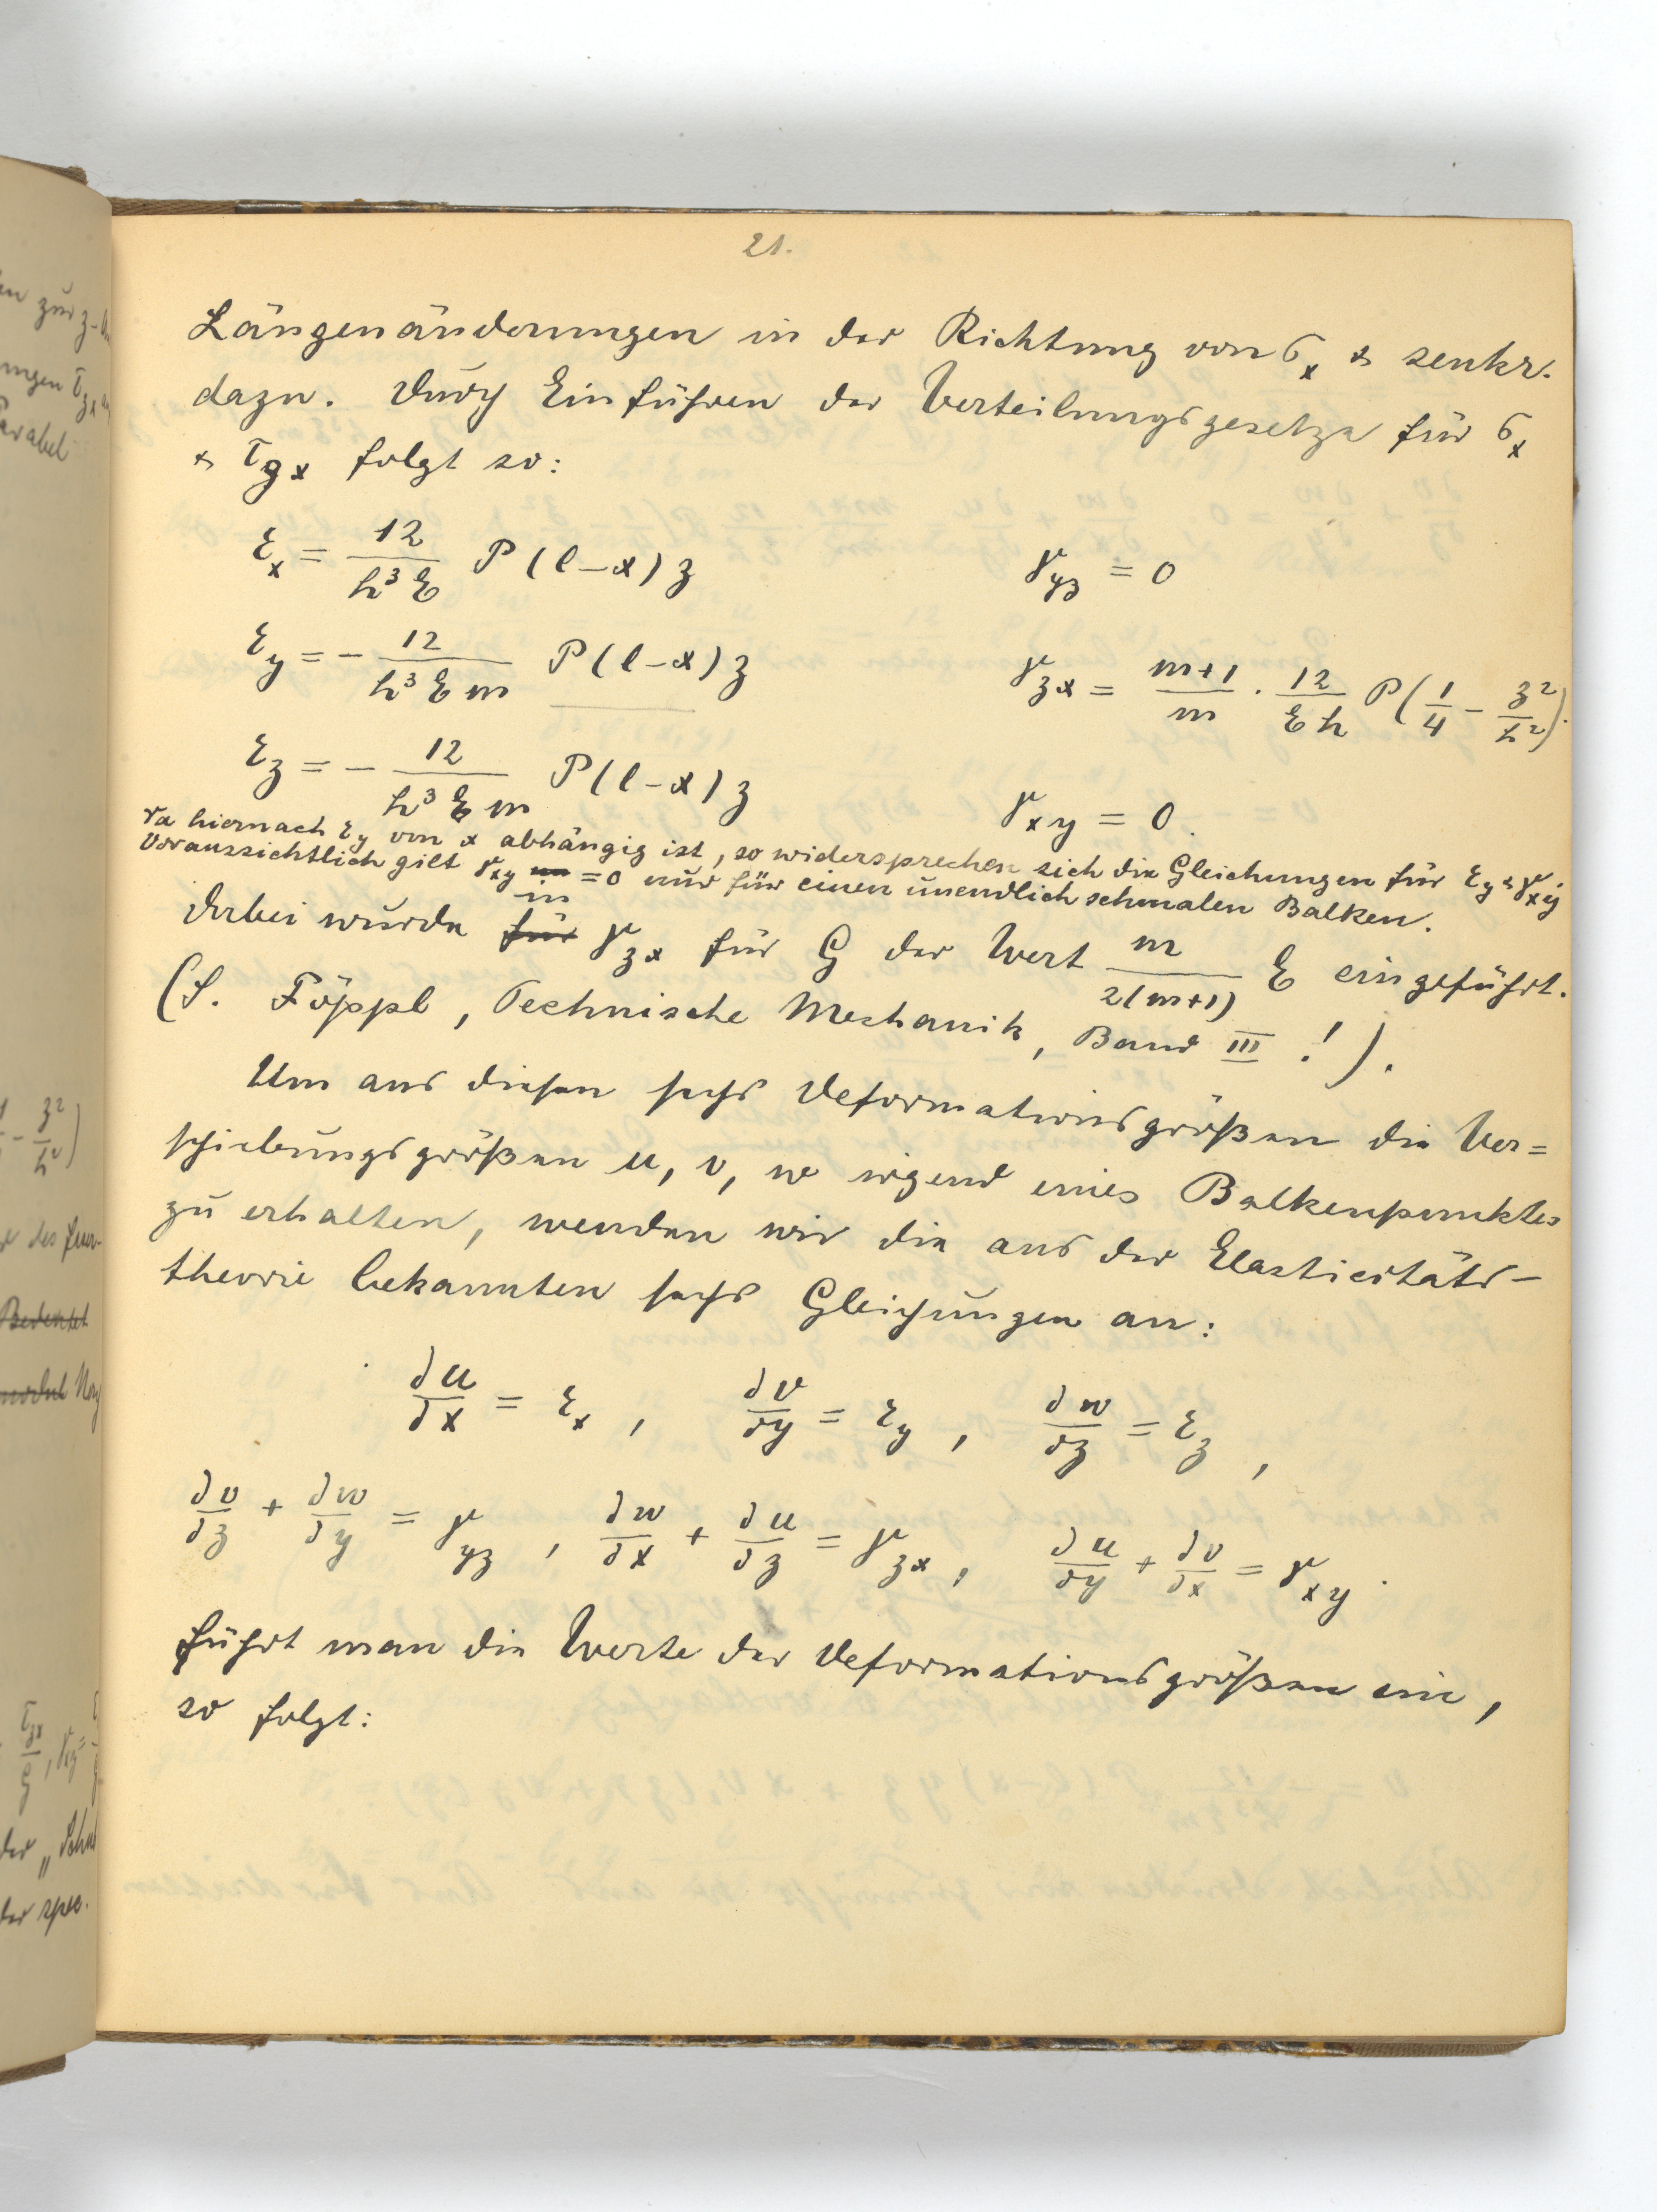 21.
Längenänderungen in der Richtung von σₓ & senkr.
dazu. Durch Einführen der Verteilungsgesetze für σₓ
& τ_zx folgt so:
εₓ = 12/(h³E) P(l-x)z    γ_yz = 0
ε_y = - 12/(h³Em) P(l-x)z    γ_zx = (m+1)/m · 12/(Eh) P(1/4 - z²/h²).
ε_z = - 12/(h³Em) P(l-x)z    γ_xy = 0.
Da hiernach ε_y von x abhängig ist, so widersprechen sich die Gleichungen für ε_y & γ_xy
Voraussichtlich gilt γ_xy = 0 nur für einen unendlich schmalen Balken.
in
Dabei wurde für γ_zx für G der Wert m/(2(m+1)) E eingeführt.
(S. Föppl, Technische Mechanik, Band III !).
Um aus diesen sechs Deformationsgrößen die Ver=
schiebungsgrößen u, v, w irgend eines Balkenpunktes
zu erhalten, wenden wir die aus der Elasticitäts-
theorie bekannten sechs Gleichungen an:
∂u/∂x = εₓ, ∂v/∂y = ε_y, ∂w/∂z = ε_z,
∂v/∂z + ∂w/∂y = γ_yz, ∂w/∂x + ∂u/∂z = γ_zx, ∂u/∂y + ∂v/∂x = γ_xy.
Führt man die Werte der Deformationsgrößen ein,
so folgt: